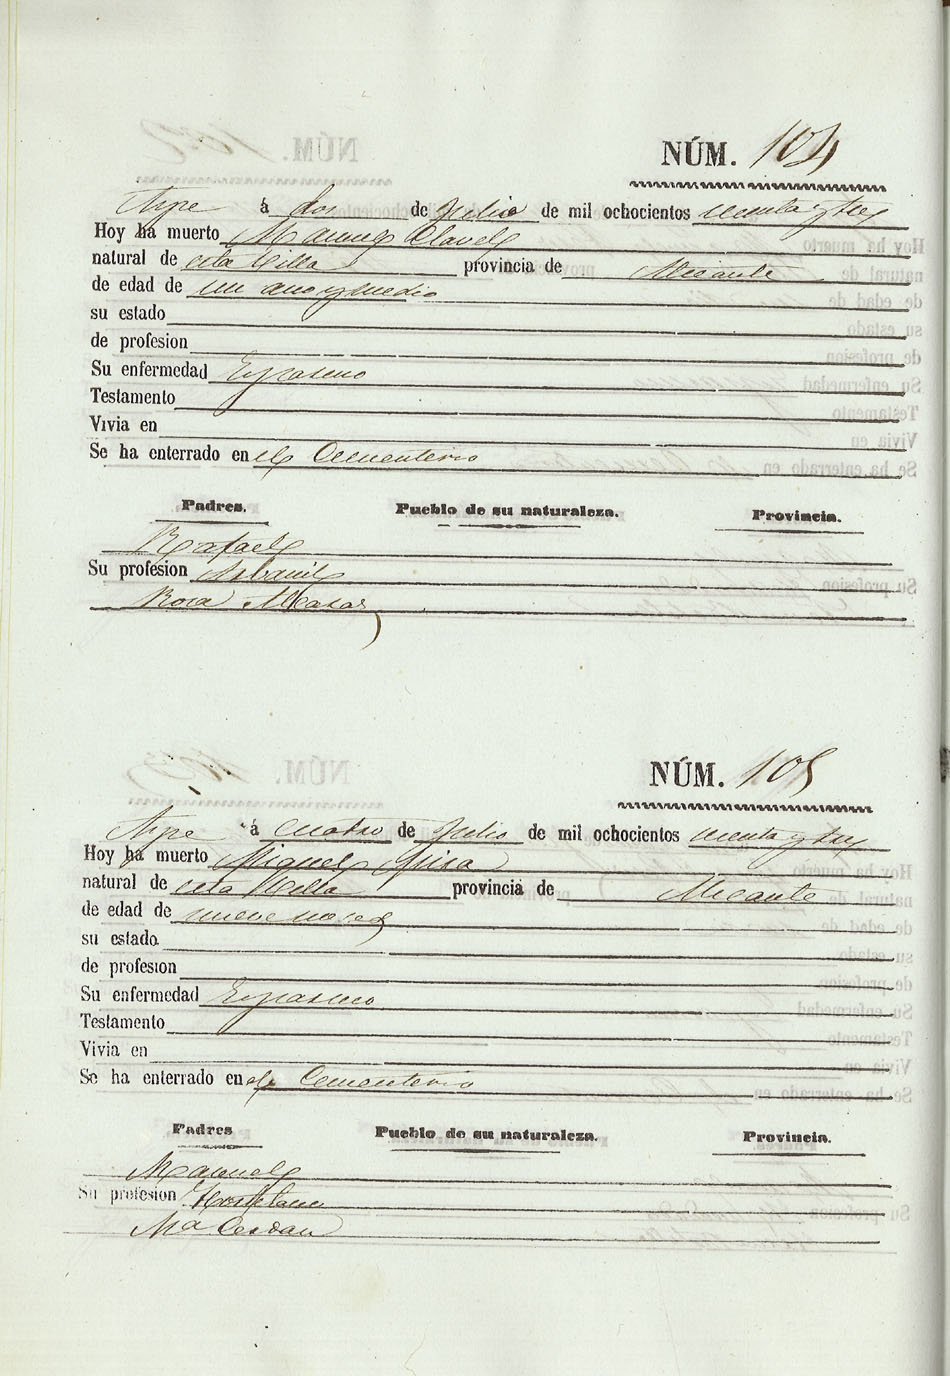 NÚM. 104
Aspe á dos de Julio de mil ochocientos sesenta y tres
Hoy ha muerto Manuel Clavel
natural de esta Villa provincia de Alicante
de edad de un año y medio
su estado
de profesion
Su enfermedad Espasmo
Testamento
Vivia en
Se ha enterrado en el Cementerio
Padres. Pueblo de su naturaleza. Provincia.
Rafael
Su profesion Albanil
Rosa
NÚM. 105
Aspe á cuatro de Julio de mil ochocientos sesenta y tres
Hoy ha muerto Miguel
natural de esta Villa provincia de Alicante
de edad de nueve meses
su estado
de profesion
Su enfermedad Espasmo
Testamento
Vivia en
Se ha enterrado en el Cementerio
Padres Pueblo de su naturaleza. Provincia.
Manuel
Su profesion Hortelano
Mª Cerdan